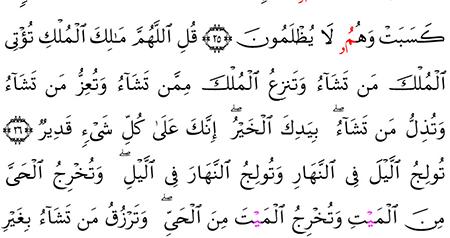 كَسَبَتْ وَهُمُۥ لَا يُظْلَمُونَ ۝٢٥ قُلِ ٱللَّهُمَّ مَٰلِكَ ٱلْمُلْكِ تُؤْتِى
ٱلْمُلْكَ مَن تَشَآءُ وَتَنزِعُ ٱلْمُلْكَ مِمَّن تَشَآءُ وَتُعِزُّ مَن تَشَآءُ
وَتُذِلُّ مَن تَشَآءُ ۖ بِيَدِكَ ٱلْخَيْرُ ۖ إِنَّكَ عَلَىٰ كُلِّ شَىْءٍ قَدِيرٌ ۝٢٦
تُولِجُ ٱلَّيْلَ فِى ٱلنَّهَارِ وَتُولِجُ ٱلنَّهَارَ فِى ٱلَّيْلِ ۖ وَتُخْرِجُ ٱلْحَىَّ
مِنَ ٱلْمَيْتِ وَتُخْرِجُ ٱلْمَيْتَ مِنَ ٱلْحَىِّ ۖ وَتَرْزُقُ مَن تَشَآءُ بِغَيْرِ